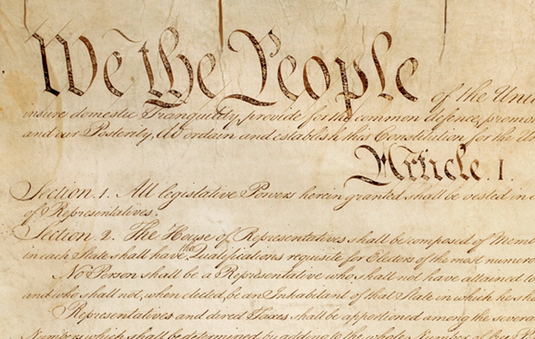 We the People of the Uni
insure domestic Tranquility, provide for the common defence, promo
and our Posterity, do ordain and establish this Constitution for the Un
Article. I.
Section. 1. All legislative Powers herein granted shall be vested in a
of Representatives.
Section. 2. The House of Representatives shall be composed of Memb
in each State shall have the Qualifications requisite for Electors of the most numero
No Person shall be a Representative who shall not have attained to
and who shall not, when elected, be an Inhabitant of that State in which he sha
Representatives and direct Taxes shall be apportioned among the severa
Numbers, which shall be determined by adding to the whole Number of